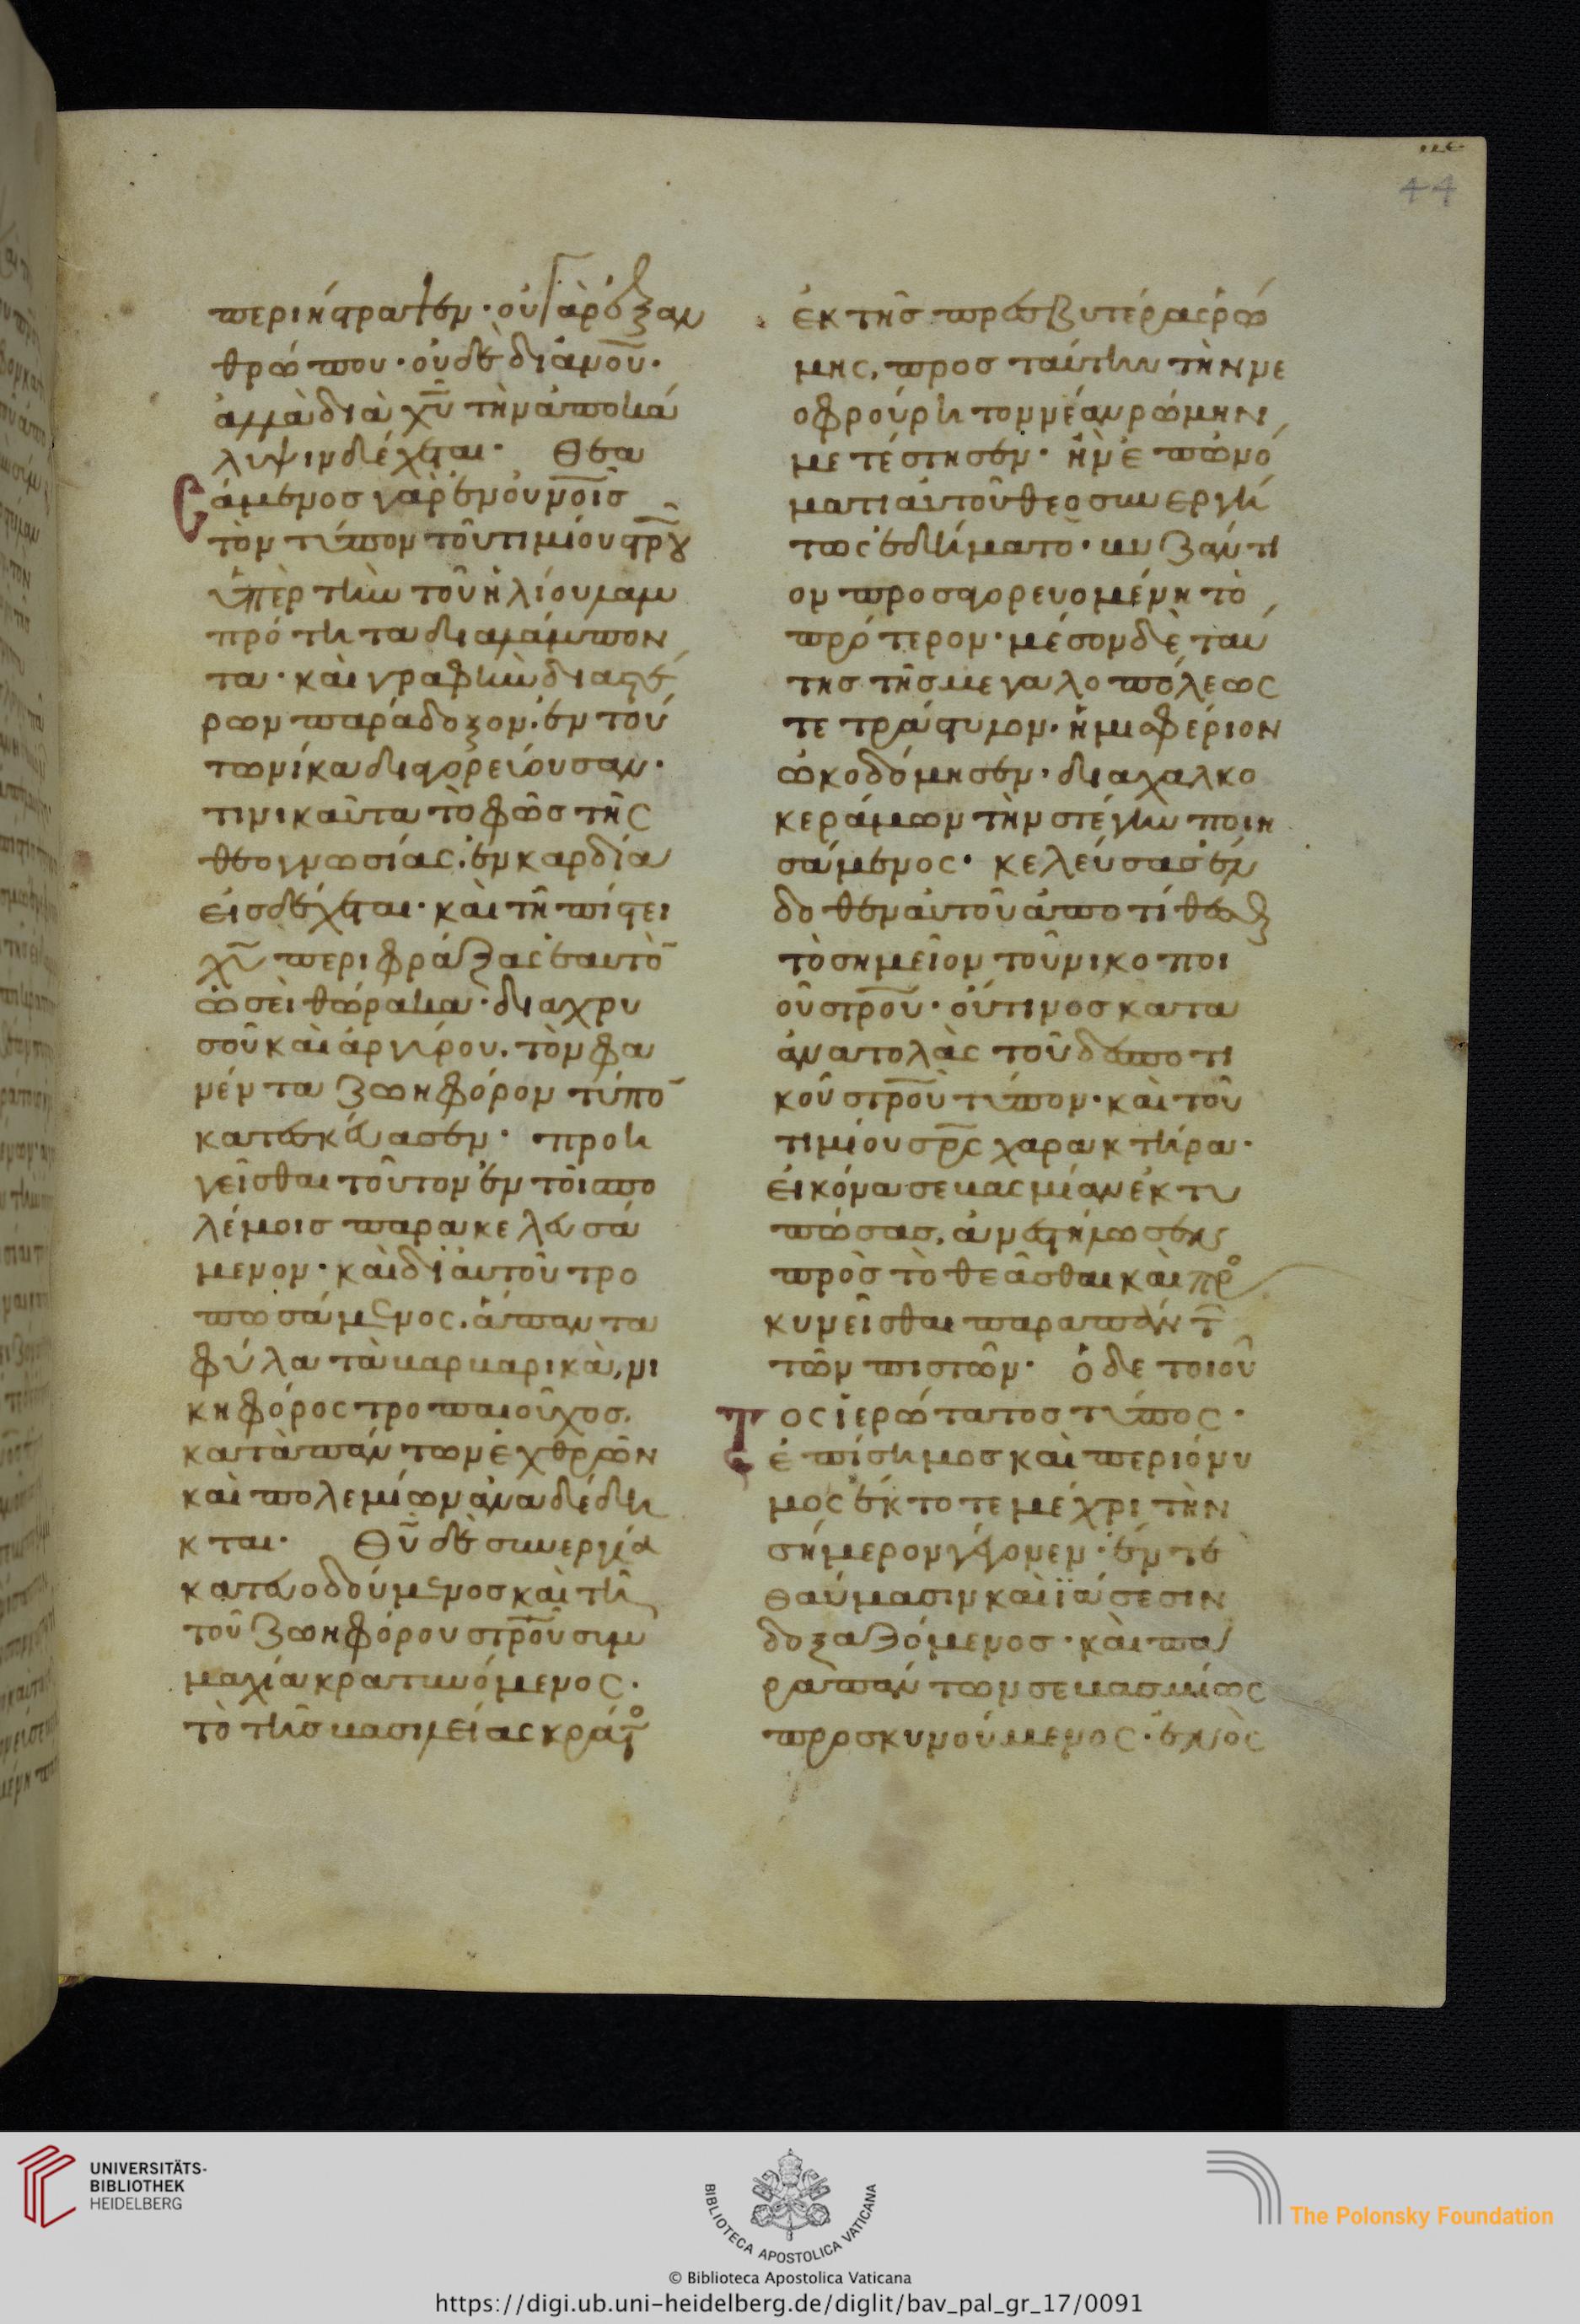 με
44
περιήστραψεν· οὐ γὰρ ἐξ ἀν
θρώπου· οὐδὲ δι ἀνο̅υ̅·
ἀλλὰ διὰ χ̅υ̅ τὴν ἀποκά
λυψιν δέχεται· Θεα
σάμενος γὰρ ἐν οὐνο̅ι̅σ
τὸν τύπον τοῦ τιμίου στρ̅ου
ὑπὲρ τὴν τοῦ ἡλίου λαμ
πρότητα διαλάμπον
τα· καὶ γραφὴν δι αστέ
ρων παράδοξον· ἐν τού
τω νίκα διαγορεύουσαν·
τινικαῦτα τὸ φῶς τῆς
θεογνωσίας· ἐν καρδία
εἰσδέχεται· καὶ τῆ πίστει
χ̅υ̅ περιφράξας ἑαυτὸ̅
ὡσεὶ θώρακα· δια χρυ
σοῦ καὶ ἀργύρου. τὸν φα
νέντα ζωηφόρον τύπο̅
κατεσκεύασεν· προη
γεῖσθαι τοῦτον ἐν τοῖς πο
λέμοις παρακελευσά
μενον· καὶ δι αὐτοῦ τρο
πωσάμενος. ἅπαντα
φύλα τὰ βαρβαρικὰ, νι
κηφόρος τροπαιοῦχος.
κατὰ πάντων ἐχθρῶν
καὶ πολεμίων ἀναδέδει
κται· Θ̅υ̅ δὲ συνεργία
κατευοδούμενος καὶ τῆ
τοῦ ζωηφόρου στρ̅ο̅υ̅ συμ
μαχία κρατυνόμενος·
τὸ τῆς βασιλείας κράτο
ἐκ τῆς πρεσβυτέρας ῥώ
μης, πρὸς ταύτην τὴν με
οφρούρητον νέαν ῥώμην
μετέστησεν· ἣν ἐπ ὠνό
ματι αὐτοῦ θεοσυνεργή
τως ἐδείματο· βυζάντι
ον προσαγορευομένη τὸ
πρότερον· μέσον δὲ ταύ
της τῆς μεγαλοπόλεως
τετράστυλον· ἡμιφέριον
ὠκοδόμησεν· δια χαλκο
κεράμων τὴν στέγην ποιη
σάμενος· κελεύσας ἔν
δοθεν αὐτοῦ ἀποτίθεσθαι
τὸ σημεῖον τοῦ νικοποι
οῦ στρ̅ο̅υ̅· οὕτινος κατα
ἀνατολὰς τοῦ δεσποτι
κοῦ στρ̅ο̅υ̅ τύπον· καὶ τοῦ
τιμίου σρ̅ς χαρακτῆρα·
εἰκόνα σεβασμίαν ἐκτυ
πώσας, ἀνεστήλωσεν
πρὸς τὸ θεᾶσθαι καὶ προ
κυνεῖσθαι παρα πάντ
τῶν πιστῶν· Ὁ δε τοιοῦ
τος ἱερώτατος τύπος·
ἐπίσημος καὶ περιόνυ
μος ἐκτοτε μέχρι τὴν
σήμερον γέγονεν· ἔν τε
θαύμασιν καὶ ἰάσεσιν
δοξαζόμενος· καὶ πα
ρα πάντων σεβασμίως
προσκυνούμενος· ἐντὸς
UNIVERSITÄTS-
BIBLIOTHEK
HEIDELBERG
BIBLIOTECA APOSTOLICA VATICANA
The Polonsky Foundation
© Biblioteca Apostolica Vaticana
https://digi.ub.uni-heidelberg.de/diglit/bav_pal_gr_17/0091